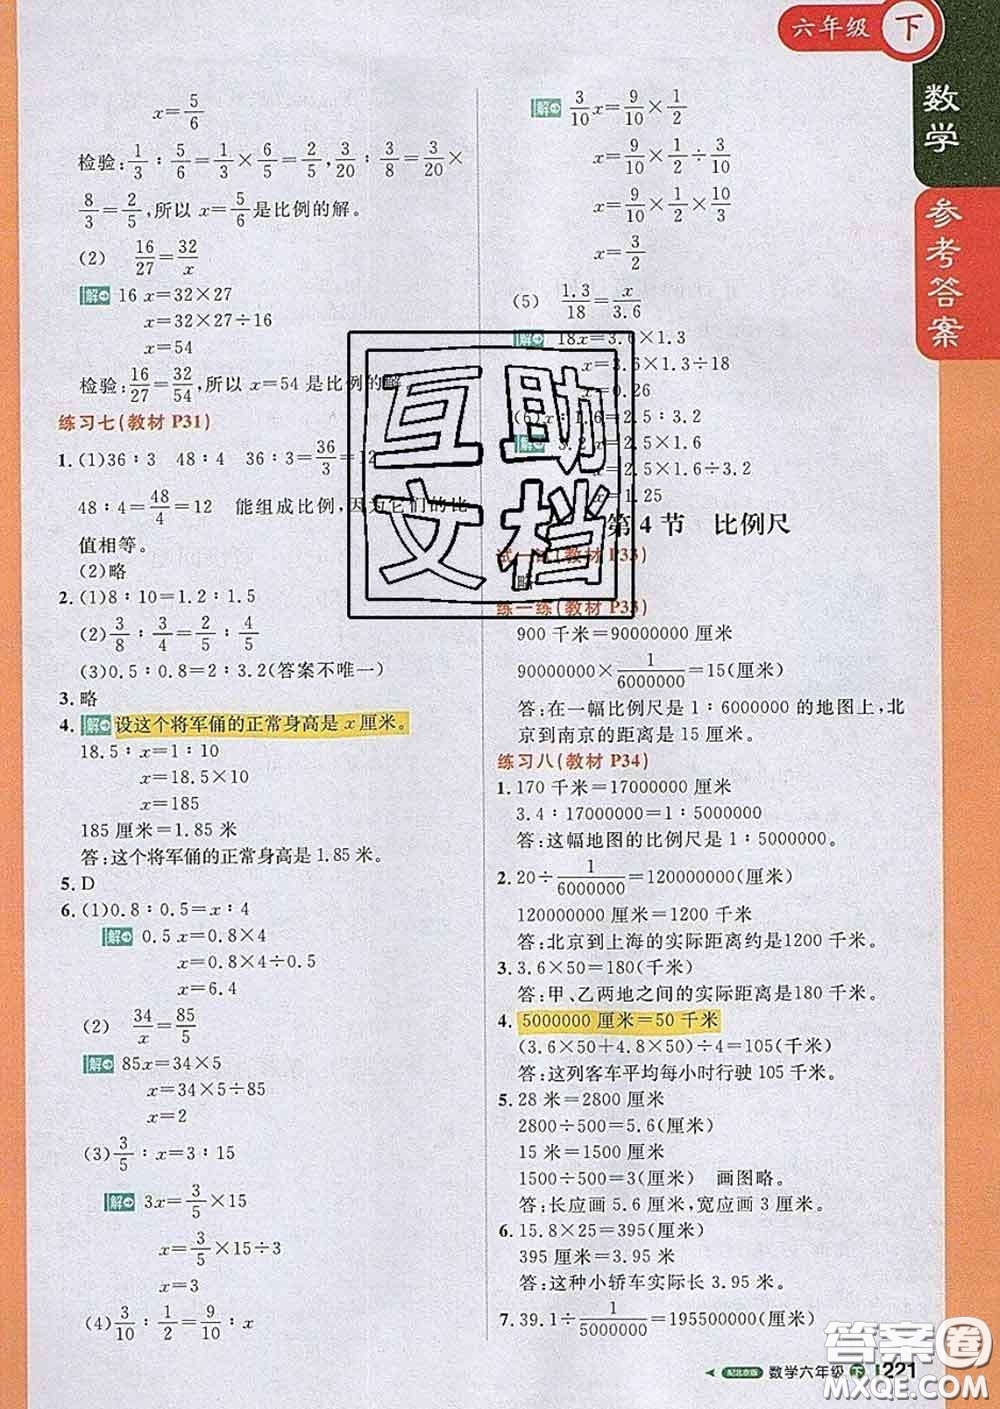 六年级 下
数学
参考答案
x=5/6
检验:1/3∶5/6=1/3×6/5=2/5,3/20∶3/8=3/20×
8/3=2/5,所以 x=5/6是比例的解。
(2) 16/27=32/x
解 16x=32×27
x=32×27÷16
x=54
检验:16/27=32/54,所以 x=54 是比例的解。
练习七(教材 P31)
1. (1)36∶3 48∶4 36∶3=36/3=12
48∶4=48/4=12 能组成比例,因为它们的比
值相等。
(2)略
2. (1)8∶10=1.2∶1.5
(2)3/8∶3/4=2/5∶4/5
(3)0.5∶0.8=2∶3.2(答案不唯一)
3. 略
4. 解 设这个将军俑的正常身高是 x 厘米。
18.5∶x=1∶10
x=18.5×10
x=185
185 厘米=1.85 米
答:这个将军俑的正常身高是 1.85 米。
5. D
6. (1)0.8∶0.5=x∶4
解 0.5x=0.8×4
x=0.8×4÷0.5
x=6.4
(2) 34/x=85/5
解 85x=34×5
x=34×5÷85
x=2
(3)3/5∶x=3∶15
解 3x=3/5×15
x=3/5×15÷3
x=3
(4)3/10∶1/2=9/10∶x
解 3/10x=9/10×1/2
x=9/10×1/2÷3/10
x=9/10×1/2×10/3
x=3/2
(5) 1.3/18=x/3.6
解 18x=3.6×1.3
x=3.6×1.3÷18
x=0.26
(6)x∶1.6=2.5∶3.2
解 3.2x=2.5×1.6
x=2.5×1.6÷3.2
x=1.25
第 4 节 比例尺
试一试(教材 P33)
略
练一练(教材 P33)
900 千米=90000000 厘米
90000000×1/6000000=15(厘米)
答:在一幅比例尺是 1∶6000000 的地图上,北
京到南京的距离是 15 厘米。
练习八(教材 P34)
1. 170 千米=17000000 厘米
3.4∶17000000=1∶5000000
答:这幅地图的比例尺是 1∶5000000。
2. 20÷1/6000000=120000000(厘米)
120000000 厘米=1200 千米
答:北京到上海的实际距离约是1200 千米。
3. 3.6×50=180(千米)
答:甲、乙两地之间的实际距离是180 千米。
4. 5000000 厘米=50 千米
(3.6×50+4.8×50)÷4=105(千米)
答:这列客车平均每小时行驶 105 千米。
5. 28 米=2800 厘米
2800÷500=5.6(厘米)
15 米=1500 厘米
1500÷500=3(厘米) 画图略。
答:长应画 5.6 厘米,宽应画 3 厘米。
6. 15.8×25=395(厘米)
395 厘米=3.95 米
答:这种小轿车实际长 3.95 米。
7. 39.1÷1/5000000=195500000(厘米)
配北京版 数学六年级 下 221
互助
文档
答案圈
MXQE.COM